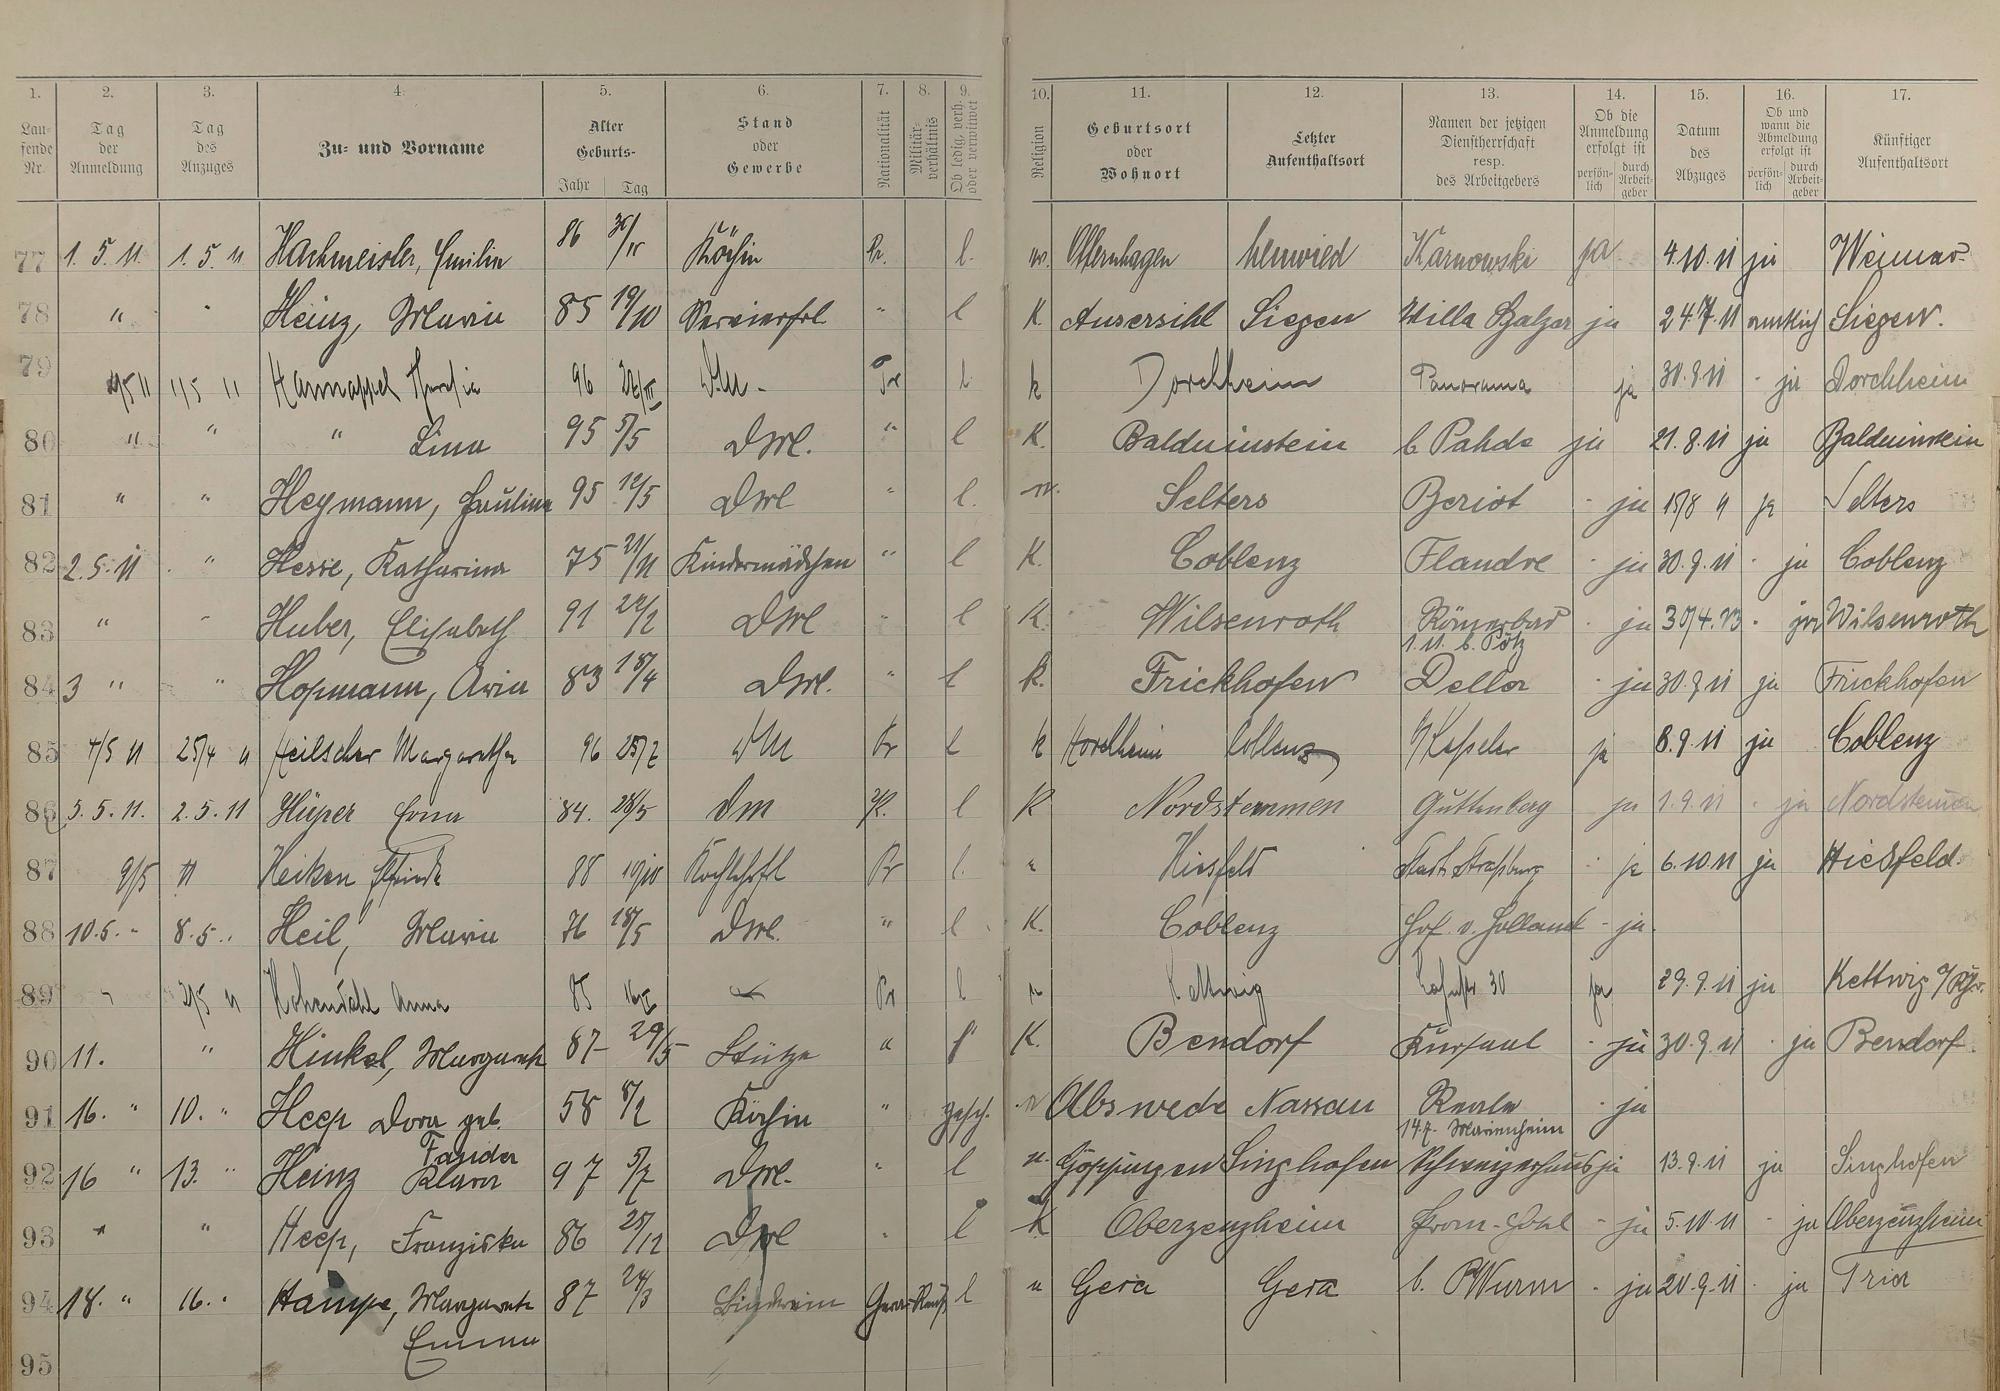 1. 2. 3. 4. 5. 6. 7. 8. 9. 10. 11. 12. 13. 14. 15. 16. 17.
Laufende Nr. Tag der Anmeldung Tag des Anzuges Zu- und Vorname Alter Geburts- Jahr Tag Stand oder Gewerbe Nationalität Militärverhältnis Ob ledig, verh. oder verwitwet Religion Geburtsort oder Wohnort Letzter Aufenthaltsort Namen der jetzigen Dienstherrschaft resp. des Arbeitgebers Ob die Anmeldung erfolgt ist persönlich durch Arbeitgeber Datum des Abzuges Ob und wann die Abmeldung erfolgt ist persönlich durch Arbeitgeber Künftiger Aufenthaltsort
77 1. 5. 11. 1. 5. 11 Hachmeister, Emilie 86 Köchin Pr. l. Neuwied Karnowski ja 4.10.11 ja Weimar
78 " " Heinz, Maria 85 19/10 Servierfrl " l K. Ausersihl Siegen Villa Balzar ja 24.7.11 Siegen.
79 1/5 11 Hannappel 96 DM. Pr l k Dorchheim Panorama ja 30.9.11 - ja Dorchheim
80 " " " Lina 95 5/5 DM. " l K. Balduinstein b Pahde ja 21.8.11 ja Balduinstein
81 " " Heymann, Paulina 95 12/5 DM " l. Selters Beriot - ja 15/8 11 ja Selters
82 2.5.11 " Hesse, Katharina 75 21/11 Kindermädchen " l K. Coblenz Flandre - ja 30.9.11 - ja Coblenz
83 " " Huber, Elisabeth 91 22/2 DM " l K. Wilsenroth Römerbad - ja - ja Wilsenroth
1.11. b. Pötz
84 3 " " Hofmann, 83 18/4 DM. " l K. Frickhofen Deller - ja 30.9.11 ja Frickhofen
85 4/5 11 25/4 11 Heilscher Margaretha 96 25/2 DM Pr l k Horchheim Coblenz Kesseler ja 8.9.11 ja Coblenz
86 5.5.11. 2.5.11 Hüper Erna 84. 28/5 Dm Pr. l K Nordstemmen Guttenberg ja 1.9.11 - ja Nordstemmen
87 9/5 11 Heiken 88 Pr l. " Hiesfeld Stadt Straßburg - ja 6.10.11 ja Hiesfeld
88 10.5. " 8.5. " Heil, Maria 76 18/5 DM. " l K. Coblenz Hof v. Holland - ja
89 " 2/5 11 Hohendahl Anna 85 Pr l Kettwig 30 ja 29.9.11 ja Kettwig a/Rhr.
90 11. " Hinkel, Margareth 87 29/5 Stütze " K. Bendorf Kursaal - ja 30.9.11 - ja Bendorf.
91 16. " 10. " Heep Dora geb. 58 8/2 Köchin " gesch. Nassau - ja
Fander 14.7. Marienheim
92 16 " 13. " Heinz Klara 97 5/7 DM. " l Göppingen Singhofen Schweizerhaus ja 13.9.11 ja Singhofen
93 " " Heep, Franziska 86 25/12 DM " l K Oberzeuzheim Prom-Hotel - ja 5.10.11 - ja Oberzeuzheim
94 18. " 16. " Hampe, Margareth 87 24/3 l Gera Gera b. PWurm - ja 20.9.11 - ja Trier
Emma
95